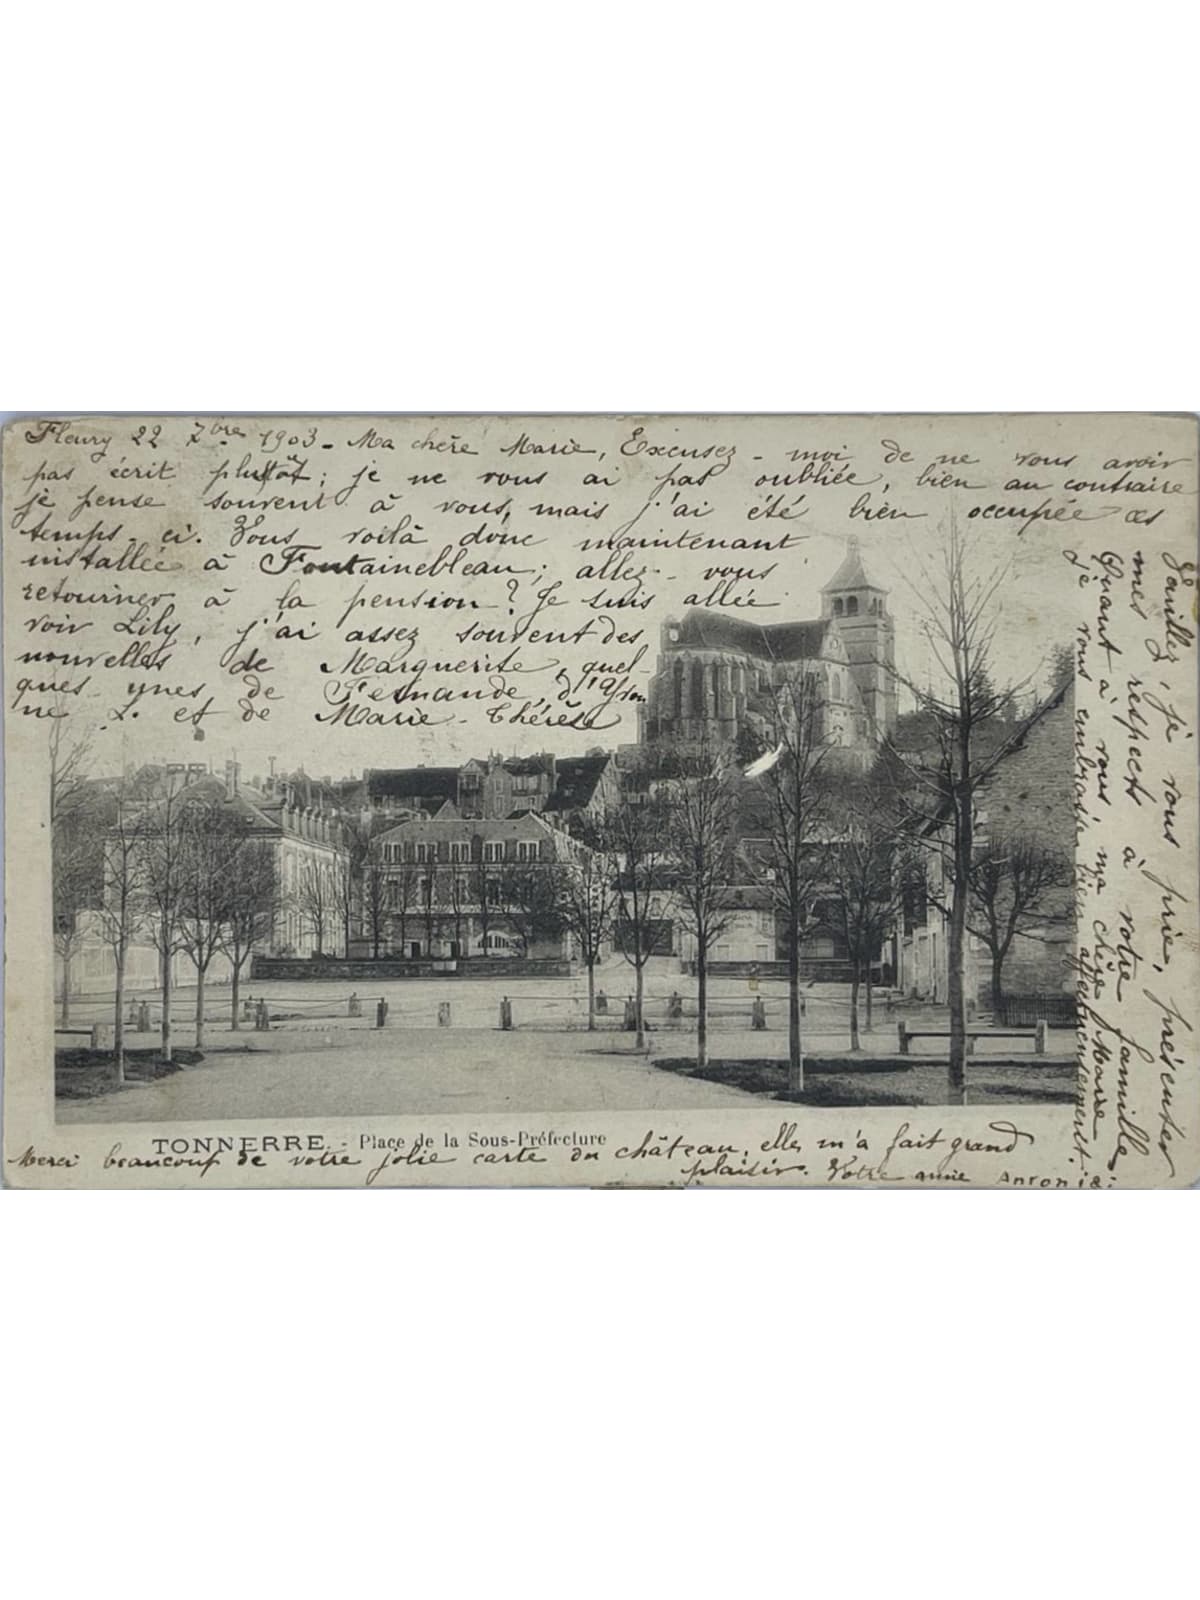 Fleury 22 7bre 1903 - Ma chère Marie, Excusez-moi de ne vous avoir
pas écrit plutôt; je ne vous ai pas oubliée, bien au contraire
je pense souvent à vous, mais j'ai été bien occupée ces
temps-ci. Vous voilà donc maintenant
installée à Fontainebleau; allez-vous
retourner à la pension? Je suis allée
voir Lily, j'ai assez souvent des
nouvelles de Marguerite, quel-
ques unes de Fernande, d'Yvon
ne L. et de Marie-Thérèse
Veuillez, je vous prie, présenter
mes respects à votre famille
Quant à vous ma chère Marie
je vous embrasse bien affectueusement.
TONNERRE. - Place de la Sous-Préfecture
Merci beaucoup de votre jolie carte du château, elle m'a fait grand
plaisir. Votre amie Antonia: